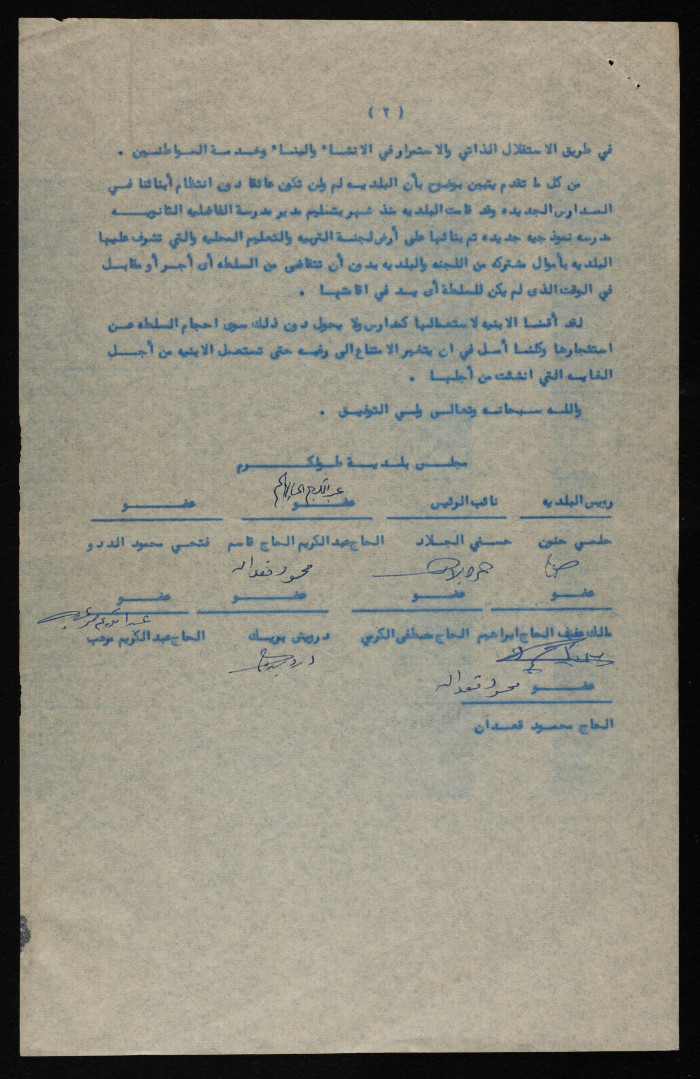 ( ٢ )
في طريق الاستقلال الذاتي والاستمرار في الانشاء والبناء وخدمة المواطنين .
من كل ما تقدم يتبين بوضوح بأن البلديه لم ولن تكون عائقا دون انتظام أبنائنا في
المدارس الجديده وقد قامت البلديه منذ شهر بتسليم مدير مدرسة الفاضليه الثانويه
مدرسه نموذجيه جديده تم بنائها على أرض لجنة التربيه والتعليم المحليه والتي تشرف عليها
البلديه بأموال مشتركه من اللجنه والبلديه بدون أن تتقاضى من السلطه أى أجر أو مقابل
في الوقت الذى لم يكن للسلطة أى يد في اقامتها .
لقد أقمنا الابنيه لاستعمالها كمدارس ولا يحول دون ذلك سوى احجام السلطه عن
استئجارها وكلنا أمل في ان يتغير الامتناع الى رغبه حتى تستعمل الابنيه من أجل
الغايه التي انشئت من أجلها .
والله سبحانه وتعالى ولي التوفيق .
مجلس بلدية طولكرم
رئيس البلديه نائب الرئيس عضو عضو
حلمي حنون حسني الجلاد الحاج عبدالكريم الحاج قاسم فتحي محمود الددو
محمود قعدان
عضو عضو عضو عضو
مالك عفيف الحاج ابراهيم الحاج مصطفى الكرمي درويش بويسك الحاج عبدالكريم مرعب
عضو محمود قعدان
الحاج محمود قعدان